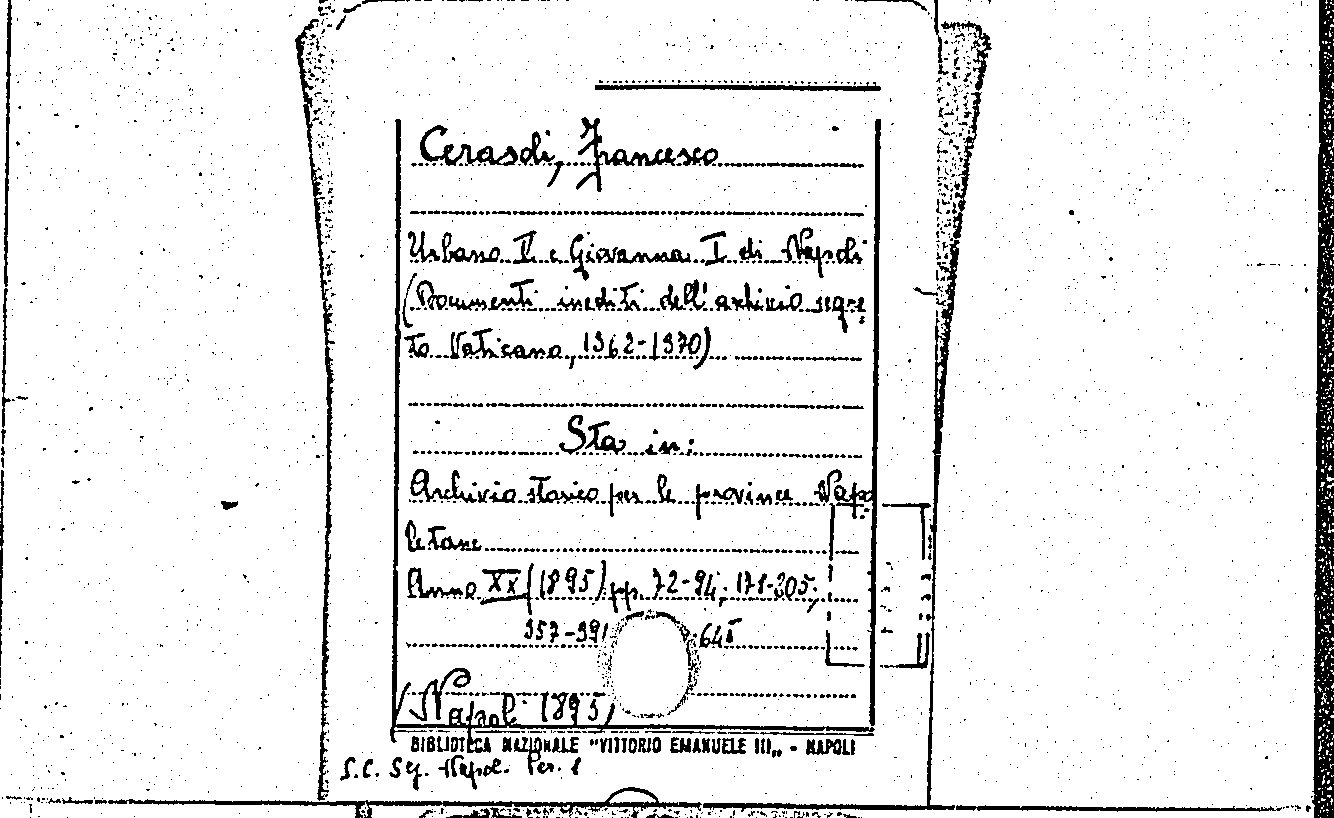 Cerasoli, Francesco
Urbano V e Giovanna I di Napoli
(Documenti inediti dell'archivio segre=
to Vaticano, 1362-1370)
Sta in:
Archivio storico per le province Napo=
letane
Anno XX (1895) pp. 72-94; 171-205;
357-391 645
(Napoli 1895)
BIBLIOTECA NAZIONALE "VITTORIO EMANUELE III" - NAPOLI
S.C. Sez. Napol. Per. 1